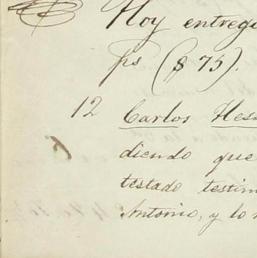 Hoy entregu
ps ($75).
12 Carlos Hes
diendo que
testado testim
Antonio, y lo